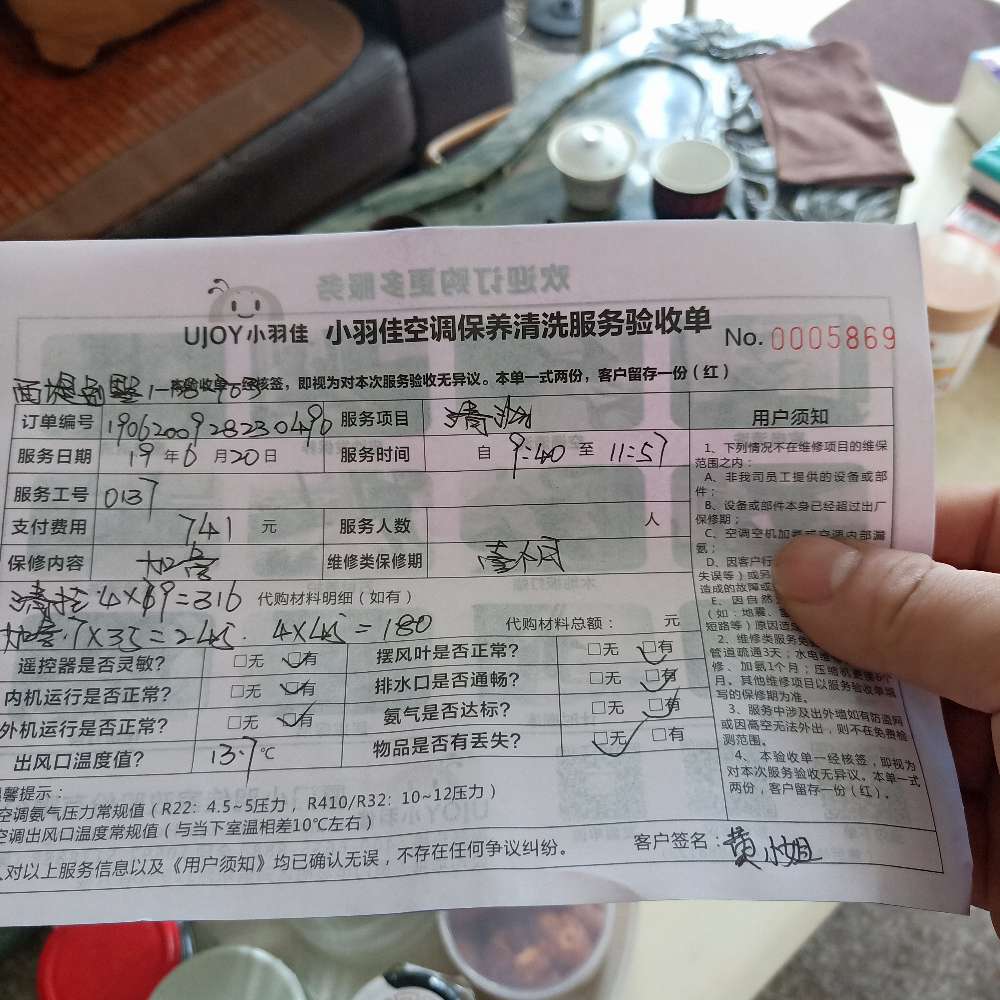 欢迎订购更多服务
UJOY小羽佳 小羽佳空调保养清洗服务验收单 No. 0005869
本验收单一经核签，即视为对本次服务验收无异议。本单一式两份，客户留存一份（红）
订单编号 19062009282304 服务项目 清洗 用户须知
服务日期 19年6月20日 服务时间 自 9:40 至 11:57
服务工号 0137
支付费用 741 元 服务人数 人
保修内容 维修类保修期 壹个月
4×69=316 代购材料明细（如有）
7×35=245. 4×45=180 代购材料总额： 元
遥控器是否灵敏？ □无 □有 摆风叶是否正常？ □无 □有
内机运行是否正常？ □无 □有 排水口是否通畅？ □无 □有
外机运行是否正常？ □无 □有 氨气是否达标？ □无 □有
出风口温度值？ 13.7℃ 物品是否有丢失？ □无 □有
馨提示：
空调氨气压力常规值（R22：4.5~5压力，R410/R32：10~12压力）
空调出风口温度常规值（与当下室温相差10℃左右）
对以上服务信息以及《用户须知》均已确认无误，不存在任何争议纠纷。 客户签名：黄小姐
1、下列情况不在维修项目的维保
范围之内：
A、非我司员工提供的设备或部
件；
B、设备或部件本身已经超过出厂
保修期；
C、空调空机加 内部漏
氨；
D、因客户行
失误等）或另
造成的故障或
E、因自然
（如：地震、
短路等）原因造
2、维修类服务
管道疏通3天；水电
修、加氨1个月；压缩机
月。其他维修项目以服务验收单填
写的保修期为准。
3、服务中涉及出外墙如有防盗网
或因高空无法外出，则不在免费检
测范围。
4、本验收单一经核签，即视为
对本次服务验收无异议。本单一式
两份，客户留存一份（红）。